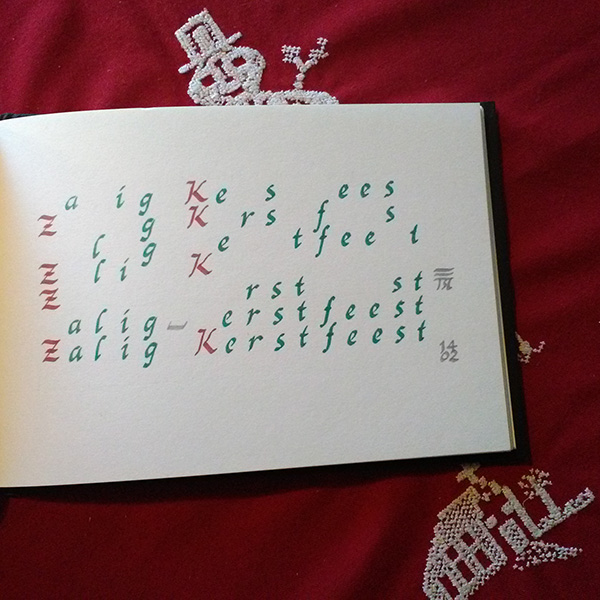 a ig Ke s ees
Z g K rs f s
l g e tfee t
Z li K
Z rst st
alig - erstfeest
Zalig Kerstfeest
14
02